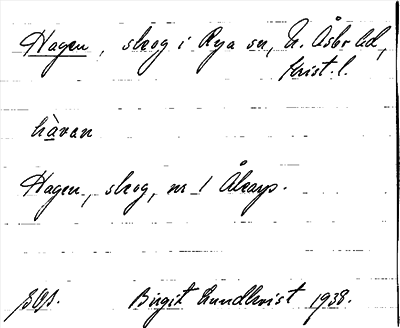 Hagen, skog i Rya sn, N. Åsbo hd,
Krist. l.
hàvan
Hagen, skog, nr 1 Åkarp.
Birgit Lundkvist 1938.